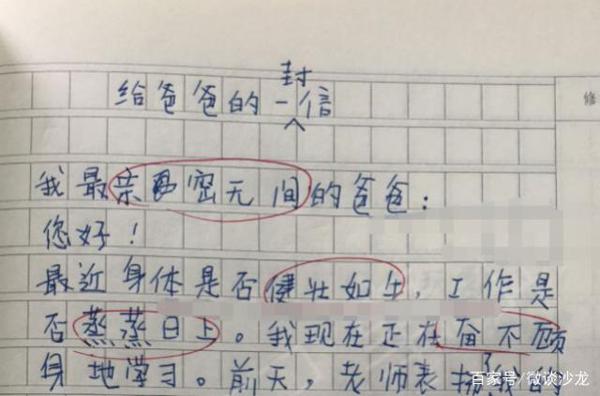 给爸爸的一封信
修
我最亲密无间的爸爸：
您好！
最近身体是否健壮如牛，工作是
否蒸蒸日上。我现在正在奋不顾
身地学习。前天，老师表扬我的
百家号/微谈沙龙